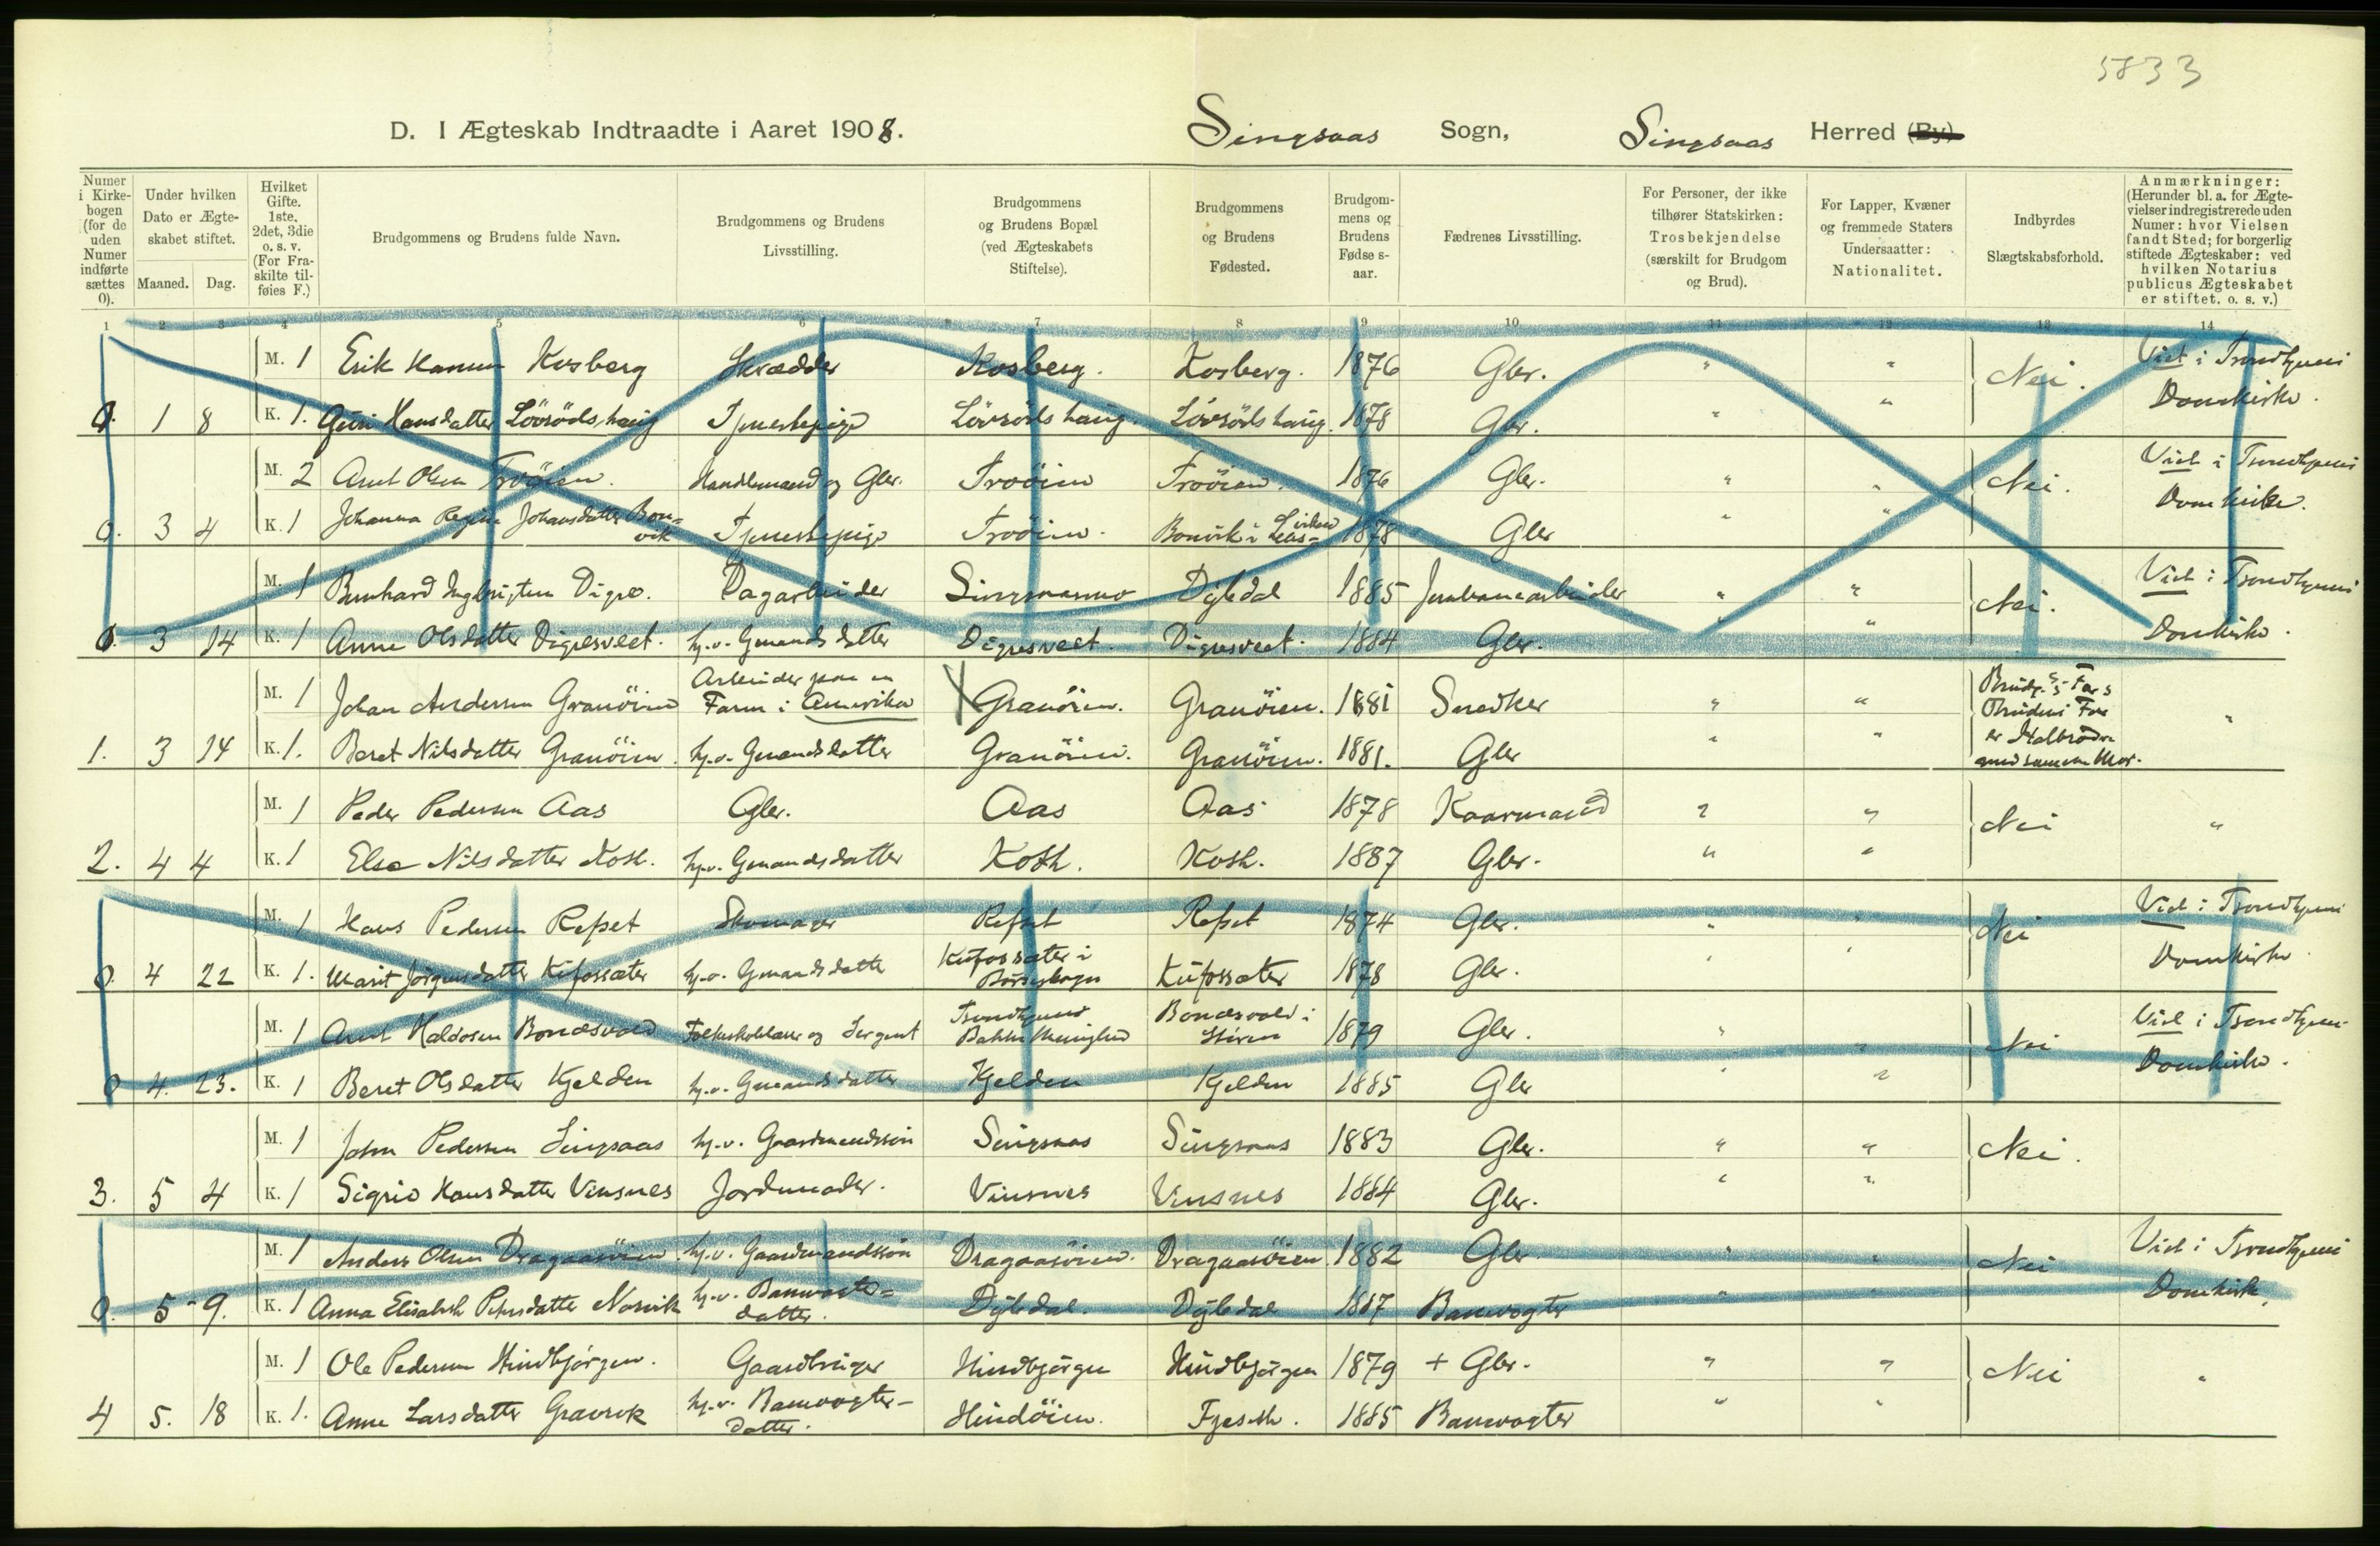 5833
D. I Ægteskab Indtraadte i Aaret 1908. Singsaas Sogn, Singsaas Herred (By)
Numer i Kirkebogen (for de uden Numer indførte sættes 0).
Under hvilken Dato er Ægteskabet stiftet.
Maaned. Dag.
Hvilket Gifte. 1ste, 2det, 3die o. s. v. (For Fraskilte tilføies F.)
Brudgommens og Brudens fulde Navn.
Brudgommens og Brudens Livsstilling.
Brudgommens og Brudens Bopæl (ved Ægteskabets Stiftelse).
Brudgommens og Brudens Fødested.
Brudgommens og Brudens Fødselsaar.
Fædrenes Livsstilling.
For Personer, der ikke tilhører Statskirken: Trosbekjendelse (særskilt for Brudgom og Brud).
For Lapper, Kvæner og fremmede Staters Undersaatter: Nationalitet.
Indbyrdes Slægtskabsforhold.
Anmærkninger: (Herunder bl. a. for Ægtevielser indregistrerede uden Numer: hvor Vielsen fandt Sted; for borgerlig stiftede Ægteskaber: ved hvilken Notarius publicus Ægteskabet er stiftet. o. s. v.)
1 2 3 4 5 6 7 8 9 10 11 12 13 14
M. 1 Erik Hansen Kosberg Skrædder Kosberg. Kosberg. 1876 Gbr. " " Nei. Viet i Trondhjems
0. 1 8 K. 1. Guri Hansdatter Lövrödshaug Tjenestepige Lövrödshaug. Lövrödshaug. 1878 Gbr. " " Domkirke.
M. 2 Arnt Olsen Troöien. Handlemand og Gbr. Troöien Troöien. 1876 Gbr. " " Nei. Viet i Trondhjems
0. 3 4 K. 1 Johanna Regine Johansdatter Bonvik Tjenestepige Troöien. Bonvik i 1878 Gbr " " Domkirke.
M. 1 Bernhard Ingebrigtsen Digre. Dagarbeider Singsaasmo Dybdal 1885 Jernbanearbeider " " Nei. Viet i Trondhjems
0. 3 14 K. 1 Anne Olsdatter Digresveet. hj.v. Gmandsdatter Digresveet. Digresveet. 1884 Gbr. " " Domkirke.
M. 1 Johan Andersen Granöien Arbeider paa en Farm i Amerika X Granöien. Granöien. 1881 Snedker " " Brudg.s Far & Brudens Far er Halbrødre med samme Mor. "
1. 3 14 K. 1. Beret Nilsdatter Granöien. hj.v. Gmandsdatter Granöien. Granöien. 1881. Gbr " "
M. 1 Peder Pedersen Aas Gbr. Aas Aas 1878 Kaarmand " " Nei "
2. 4 4 K. 1 Else Nilsdatter Kosb. hj.v. Gmandsdatter Kosb. Kosb. 1887 Gbr. " "
M. 1 Hans Pedersen Refset Skomager Refset Refset 1874 Gbr. " " Nei Viet i Trondhjems
0. 4 22 K. 1. Marit Jörgensdatter Kufossæter hj.v. Gmandsdatter Kufossæter i Börseskogn Kufossæter 1878 Gbr. " " Domkirke.
M. 1 Arnt Haldosen Bonæsvold Folkeskolelærer og Sergent Trondhjems Bakke Menighed Bonæsvold i Stören 1879 Gbr. " " Nei Viet i Trondhjems
0 4. 23. K. 1 Beret Olsdatter Kjelden hj.v. Gmandsdatter Kjelden Kjelden 1885 Gbr " " Domkirke.
M. 1 John Pedersen Singsaas hj.v. Gaardmandssön Singsaas Singsaas 1883 Gbr. " " Nei.
3. 5 4 K. 1 Sigrid Hansdatter Vinsnes Jordmoder. Vinsnes Vinsnes 1884 Gbr. " "
M. 1 Anders Olsen Dragaasöien. hj.v. Gaardmandssön Dragaasöien. Dragaasöien. 1882 Gbr. " " Nei Viet i Trondhjems
0. 5 9. K. 1 Anna Elisabeth Petersdatter Norvik hj.v. Banevogterdatter. Dybdal. Dybdal 1887 Banevogter " " Domkirke.
M. 1 Ole Pedersen Hindbjörgen. Gaardbruger Hindbjörgen Hindbjörgen 1879 + Gbr. " " Nei "
4 5. 18 K. 1. Anne Larsdatter Gravrok hj.v. Banevogterdatter. Hindöien. 1885 Banevogter " "